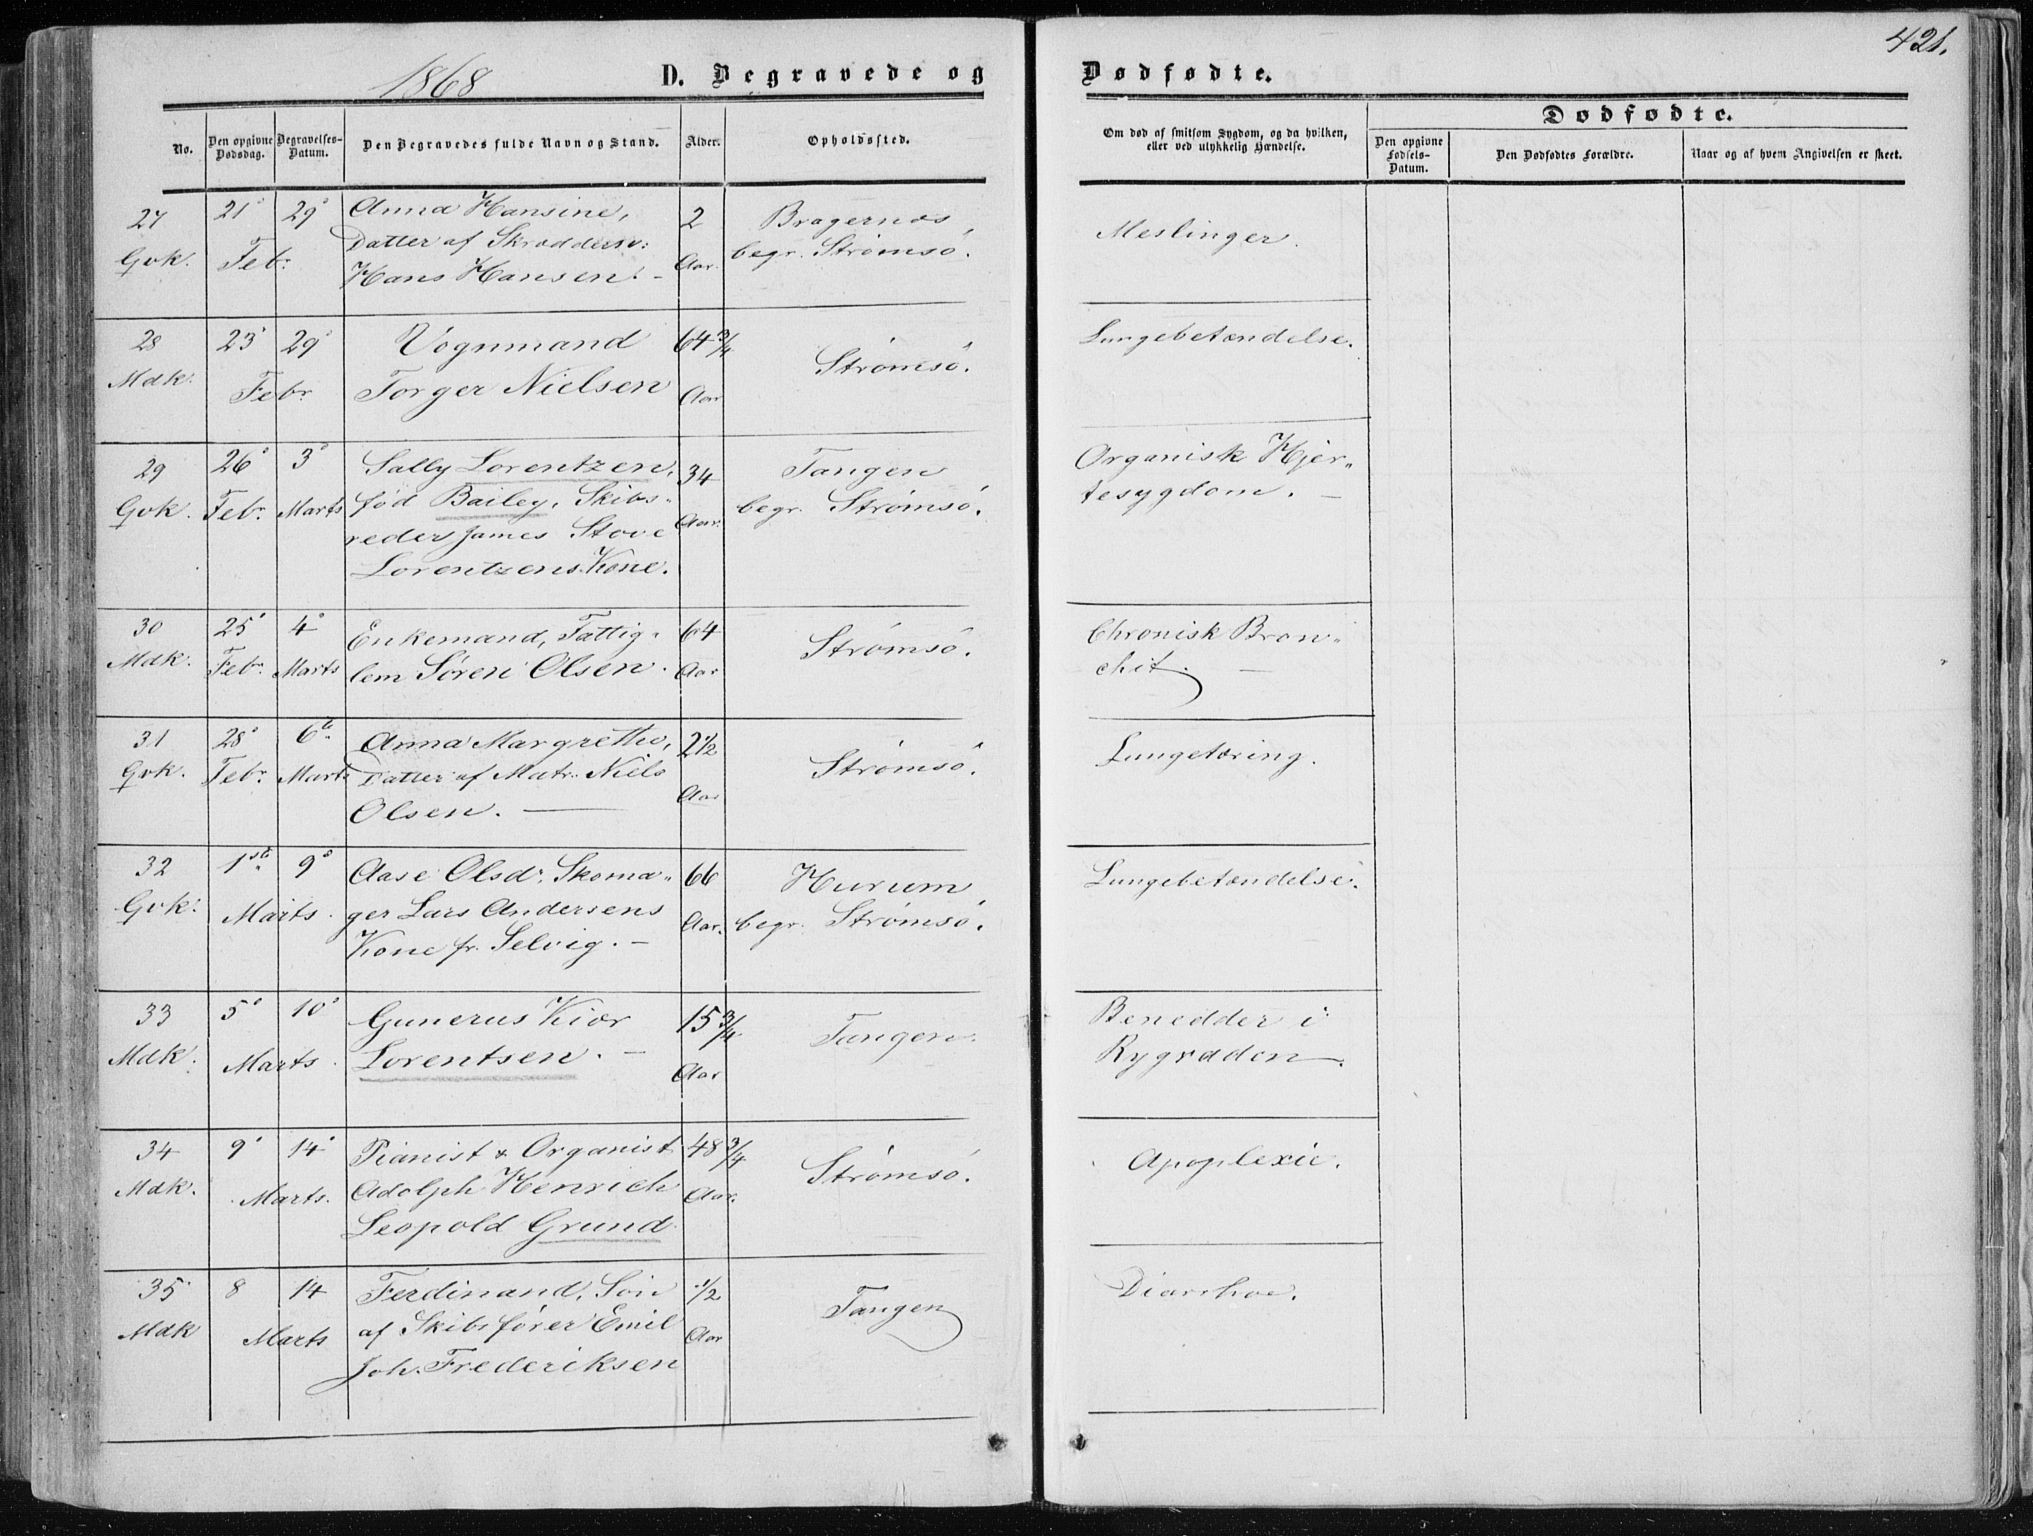 421.
1868
D. Begravede og
Dødfødte.
No.
Den opgivne Dødsdag.
Begravelses-Datum.
Den Begravedes fulde Navn og Stand.
Alder.
Opholdssted.
Om død af smitsom Sygdom, og da hvilken,
eller ved ulykkelig Hændelse.
Dødfødte.
Den opgivne Fødsels-Datum.
Den Dødfødtes Forældre.
Naar og af hvem Angivelsen er skeet.
27 21' 29' Anna Hansine, 2 Bragernæs Meslinger.
Gvk. Febr. Datter af Skræddersv: Aar. begr. Strømsö.
Hans Hansen. -
28 23' 29' Vognmand 64 3/4 Strømsö. Lungebetændelse.
Mdk. Febr. Torger Nielsen Aar
29 26' 3' Sally Lorentzen, 34 Tangen Organisk Hjer-
Gvk. Febr. Marts fød Bailey, Skibs- Aar. begr. Strømsö. tesygdom. -
reder James Stove
Lorentzens Kone.
30 25' 4' Enkemand, Fattig- 64 Strømsö. Chronisk Bron-
Mdk. Febr. Marts lem Søren Olsen. Aar chit. -
31 28' 6te Anna Margrethe, 2 1/2 Strømsö. Lungetæring.
Gvk. Febr. Marts Datter af Matr. Niels Aar
Olsen. -
32 1ste 9' Aase Olsdr. Skoma- 66 Hurum Lungebetændelse.
Gvk. Marts. ger Lars Andersens Aar. begr. Strømsö.
Kone fr. Selvig. -
33 5' 10' Gunerus Kiær 15 3/4 Tangen. Benedder i
Mdk. Marts. Lorentsen. - Aar Rygraden.
34 9' 14' Pianist & Organist 48 3/4 Strømsö. Apoplexie.
Mdk. Marts. Adolph Henrich Aar.
Leopold Grund
35 8 14 Ferdinand, Søn 1/2 Tangen Diarrhoe.
Mdk Marts af Skibsfører Emil Aar
Joh. Frederiksen